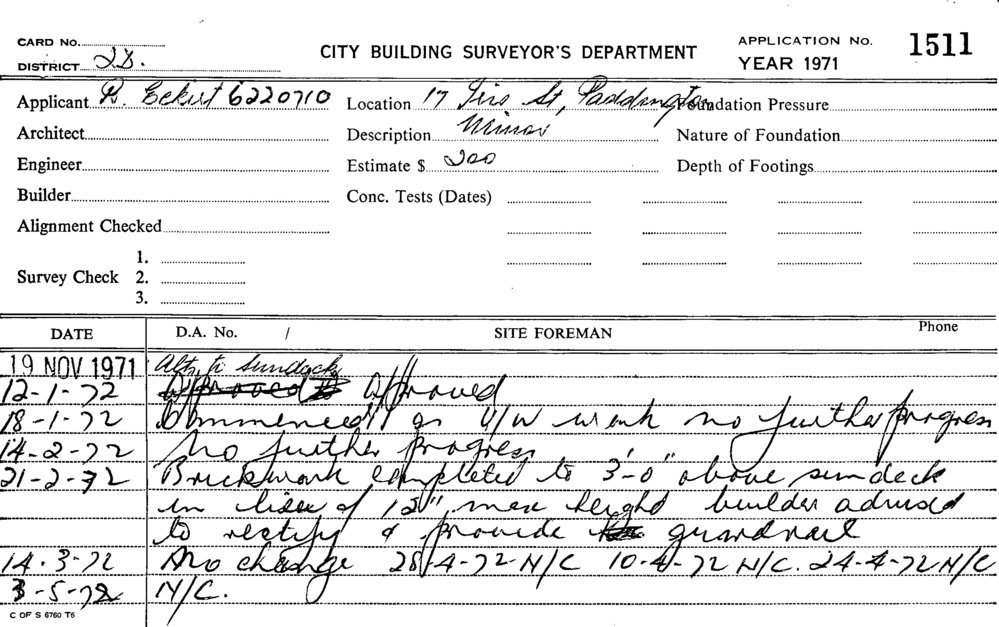 CARD No.
DISTRICT 2D.
CITY BUILDING SURVEYOR'S DEPARTMENT
APPLICATION No. 1511
YEAR 1971
Applicant R. Eckert 6220710 Location 17 St, Paddington Foundation Pressure
Architect Description Minor Nature of Foundation
Engineer Estimate $ 200 Depth of Footings
Builder Conc. Tests (Dates)
Alignment Checked
1.
Survey Check 2.
3.
DATE D.A. No. / SITE FOREMAN Phone
19 NOV 1971 Alts. to sundeck
12-1-72 approved to approved
18-1-72 Commenced on U/W work no further progress
14-2-72 No further progress
21-2-72 Brickwork completed to 3'-0" above sundeck
in lieu of 12" max height builder advised
to rectify & provide guardrail
14.3-72 No change 28-4-72 N/C 10-4-72 N/C. 24-4-72 N/C
3-5-72 N/C.
C OF S 6760 T6